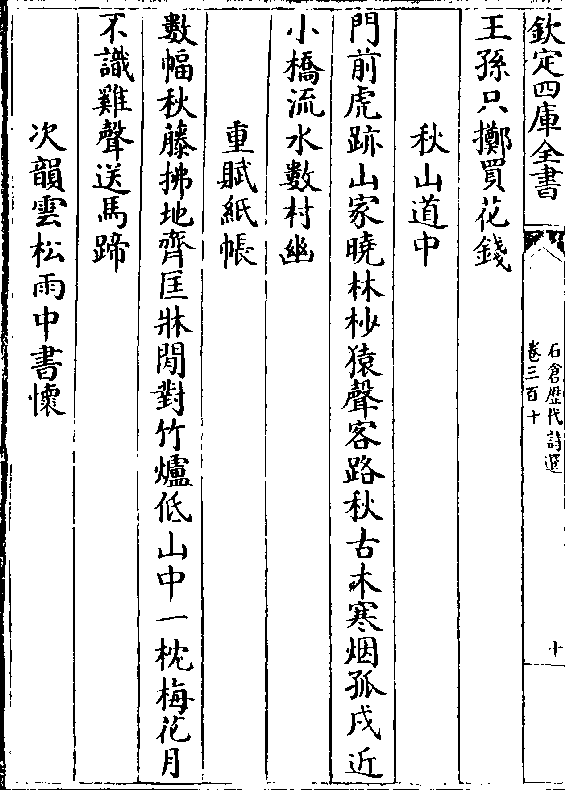 欽定四庫全書
石倉歷代詩選
卷三百十
十
王孫只擲買花錢
秋山道中
門前虎跡山家曉林杪猿聲客路秋古木寒烟孤戍近
小橋流水數村幽
重賦紙帳
數幅秋藤拂地齊匡牀閒對竹爐低山中一枕梅花月
不識雞聲送馬蹄
次韻雲松雨中書懷